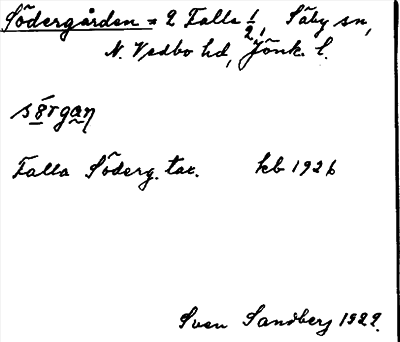 Södergården = 2 Falla 1/2, Säby sn,
N. Vedbo hd, Jönk. l.
Falla Söderg. tax. kb 1926
Sven Sandberg 1929.